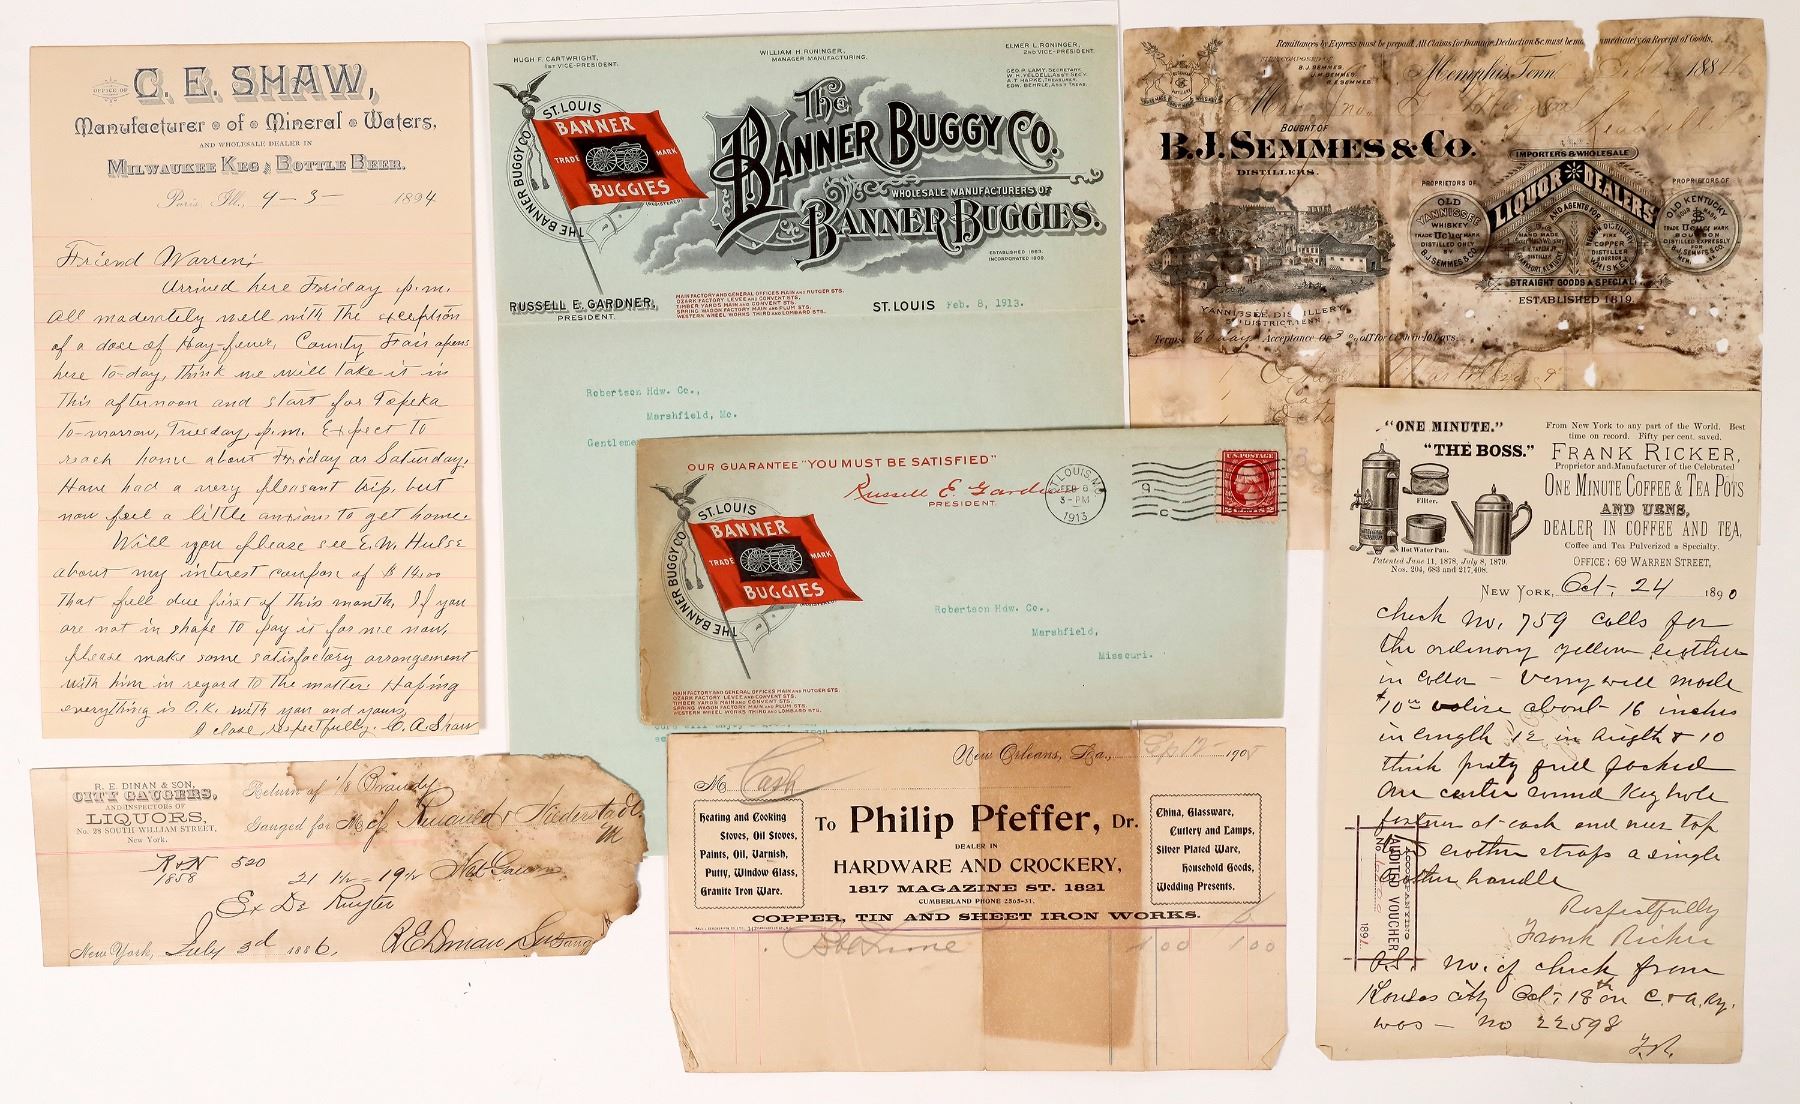 OFFICE OF
C. E. SHAW,
Manufacturer of Mineral Waters,
AND WHOLESALE DEALER IN
MILWAUKEE KEG & BOTTLE BEER.
Paris, Ill., 9-3- 1894
Friend Warren;
Arrived here Friday p.m.
all moderately well with the exception
of a dose of Hay-fever, County Fair opens
here to-day, think we will take it in
this afternoon and start for Topeka
to-morrow, Tuesday, p.m. Expect to
reach home about Friday or Saturday,
Have had a very pleasant trip, but
now feel a little anxious to get home.
Will you please see E. W. Hulse
about my interest coupon of $14.00
that fell due first of this month, If you
are not in shape to pay it for me now,
please make some satisfactory arrangement
with him in regard to the matter. Hoping
everything is O.K. with you and yours,
I close, respectfully. C. A. Shaw
HUGH F. CARTWRIGHT,
1ST VICE-PRESIDENT.
WILLIAM H. RONINGER,
MANAGER MANUFACTURING.
ELMER L. RONINGER,
2ND VICE-PRESIDENT.
GEO. P. LAMY, SECRETARY.
W. H. YELDELL, ASS'T SECY.
A. T. HAPKE, TREASURER.
EDW. BEHRLE, ASS'T TREAS.
THE BANNER BUGGY CO. ST. LOUIS
BANNER
TRADE MARK
BUGGIES
(REGISTERED)
The
BANNER BUGGY CO.
WHOLESALE MANUFACTURERS OF
BANNER BUGGIES.
ESTABLISHED 1883.
INCORPORATED 1899.
RUSSELL E. GARDNER,
PRESIDENT.
MAIN FACTORY AND GENERAL OFFICES MAIN AND RUTGER STS.
OZARK FACTORY LEVEE AND CONVENT STS.
TIMBER YARDS MAIN AND PLUM STS.
SPRING WAGON FACTORY MAIN AND PLUM STS.
WESTERN WHEEL WORKS THIRD AND LOMBARD STS.
ST. LOUIS Feb. 8, 1913.
Robertson Hdw. Co.,
Marshfield, Mo.
Gentleme
OUR GUARANTEE "YOU MUST BE SATISFIED"
Russell E. Gardner
PRESIDENT.
ST. LOUIS, MO.
FEB 8
3-PM
1913
U.S. POSTAGE
THE BANNER BUGGY CO. ST. LOUIS
BANNER
TRADE MARK
BUGGIES
(REGISTERED)
Robertson Hdw. Co.,
Marshfield,
Missouri.
MAIN FACTORY AND GENERAL OFFICES MAIN AND RUTGER STS.
OZARK FACTORY LEVEE AND CONVENT STS.
TIMBER YARDS MAIN AND PLUM STS.
SPRING WAGON FACTORY MAIN AND PLUM STS.
WESTERN WHEEL WORKS THIRD AND LOMBARD STS.
Remittances by Express must be prepaid. All Claims for Damage, Deduction &c must be made immediately on Receipt of Goods.
B. J. SEMMES
J. M. SEMMES
Memphis, Tenn. 188
BOUGHT OF
B. J. SEMMES & CO.
DISTILLERS.
IMPORTERS & WHOLESALE
LIQUOR DEALERS
AND AGENTS FOR
PROPRIETORS OF
OLD
YANNISSEE
WHISKEY
TRADE MARK
DISTILLED ONLY
BY
B. J. SEMMES & CO.
PROPRIETORS OF
OLD KENTUCKY
SOUR MASH
TRADE MARK
BOURBON
DISTILLED EXPRESSLY
FOR
B. J. SEMMES & CO.
HAND MADE
FIRE
COPPER
WHISKEY
STRAIGHT GOODS A SPECIALTY
ESTABLISHED 1819.
YANNISSEE DISTILLERY
DISTRICT TENN.
Terms 60 days Acceptance Or 3 % off for Cash in 10 Days.
"ONE MINUTE."
"THE BOSS."
Filter.
Hot Water Pan.
Patented June 11, 1878, July 8, 1879.
Nos. 204, 683 and 217,408.
From New York to any part of the World. Best
time on record. Fifty per cent. saved.
FRANK RICKER,
Proprietor and Manufacturer of the Celebrated
ONE MINUTE COFFEE & TEA POTS
AND URNS,
DEALER IN COFFEE AND TEA,
Coffee and Tea Pulverized a Specialty.
OFFICE: 69 WARREN STREET,
NEW YORK, Oct. 24 1890
check no. 759 calls for
the ordinory yellow leother
in coller - verry well made
$10.00 valise about 16 inches
in length 12 in heigth & 10
thick prety full packed
one center round Key hole
fastners at each end neer top
leother straps a single
leother handle
Respectfully
Frank Ricker
P.S. No. of check from
Kansas city Oct. 18th on C. & A. Ry.
was - no 22598
F.R.
ACCOMPANYING
AUDITED VOUCHER
No
189
R. E. DINAN & SON,
CITY GAUGERS,
AND INSPECTORS OF
LIQUORS,
No. 28 SOUTH WILLIAM STREET,
New York.
Return of 1/8 Brandy
Gauged for M
R & N 520
1858
21 1/2 - 19 1/2
Ex De Ruyter
New York, July 3d 1886, R E Dinan & Son Gaugers
New Orleans, La., Sep 12 1908
M Cash
Heating and Cooking
Stoves, Oil Stoves,
Paints, Oil, Varnish,
Putty, Window Glass,
Granite Iron Ware.
To Philip Pfeffer, Dr.
DEALER IN
HARDWARE AND CROCKERY,
1817 MAGAZINE ST. 1821
CUMBERLAND PHONE 2565-31.
China, Glassware,
Cutlery and Lamps,
Silver Plated Ware,
Household Goods,
Wedding Presents.
COPPER, TIN AND SHEET IRON WORKS.
Lime 1 00 1 00